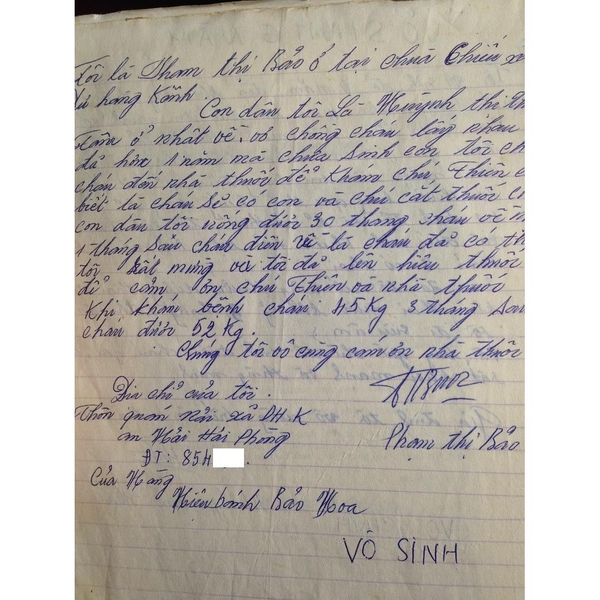 Tôi là Phạm thị Bảo ở tại chùa Chiếu xã
Dư hàng Kênh.
Con dâu tôi Là Huỳnh thị
Tâm ở nhật về. vợ chồng cháu lấy nhau
đủ hơn 1 năm mà chưa sinh con tôi
cháu đến nhà thuốc để khám chú Thiên
biết là cháu sẽ có con và chú cắt thuốc
con dâu tôi uống được 30 thang cháu về
1 tháng sau cháu điện về là cháu đã có
tôi rất mừng và tôi đã lên hiệu thuốc
để cảm ơn chú Thiên và nhà thuốc
Khi khám bệnh cháu 45 Kg 3 tháng sau
cháu được 52 Kg.
Chúng tôi vô cùng cám ơn nhà thuốc
Địa chỉ của tôi.
Thôn quán nải xã DH.K
an Hải Hải Phòng
Phạm thị Bảo
ĐT: 854
Của Hàng
Hiệu bánh Bảo Hoa
VÔ SINH